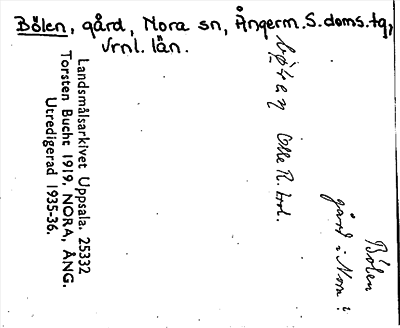 Bölen, gård, Nora sn, Ångerm. S. doms. tg,
Vrnl. län.
Landsmålsarkivet Uppsala. 25332
Torsten Bucht 1919. NORA, ÅNG.
Utredigerad 1935-36.
Olle R.
Bölen
gård i Nora